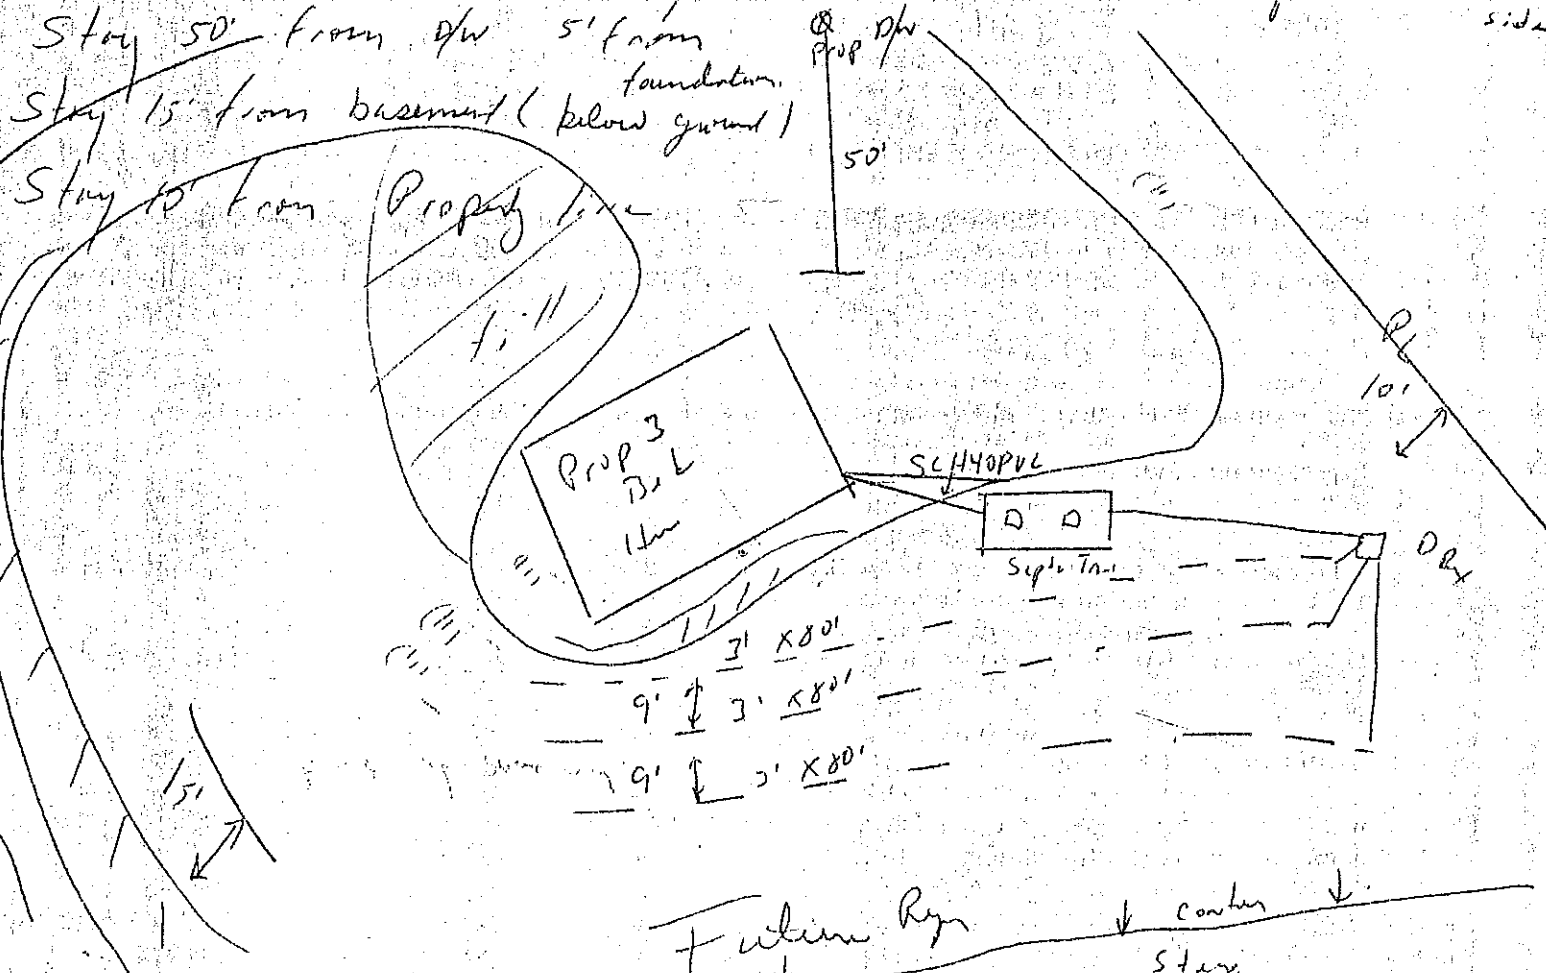 side
Stay 50' from D/W 5' from
foundation.
Stay 15' from basement (below ground)
Stay 10' from Property line
Prop D/W
50'
fill
PL
10'
Prop 3
SCH40PVC
D D
Septic
3' x80'
9' 3' x80'
9' 3' x80'
15'
Future
contour